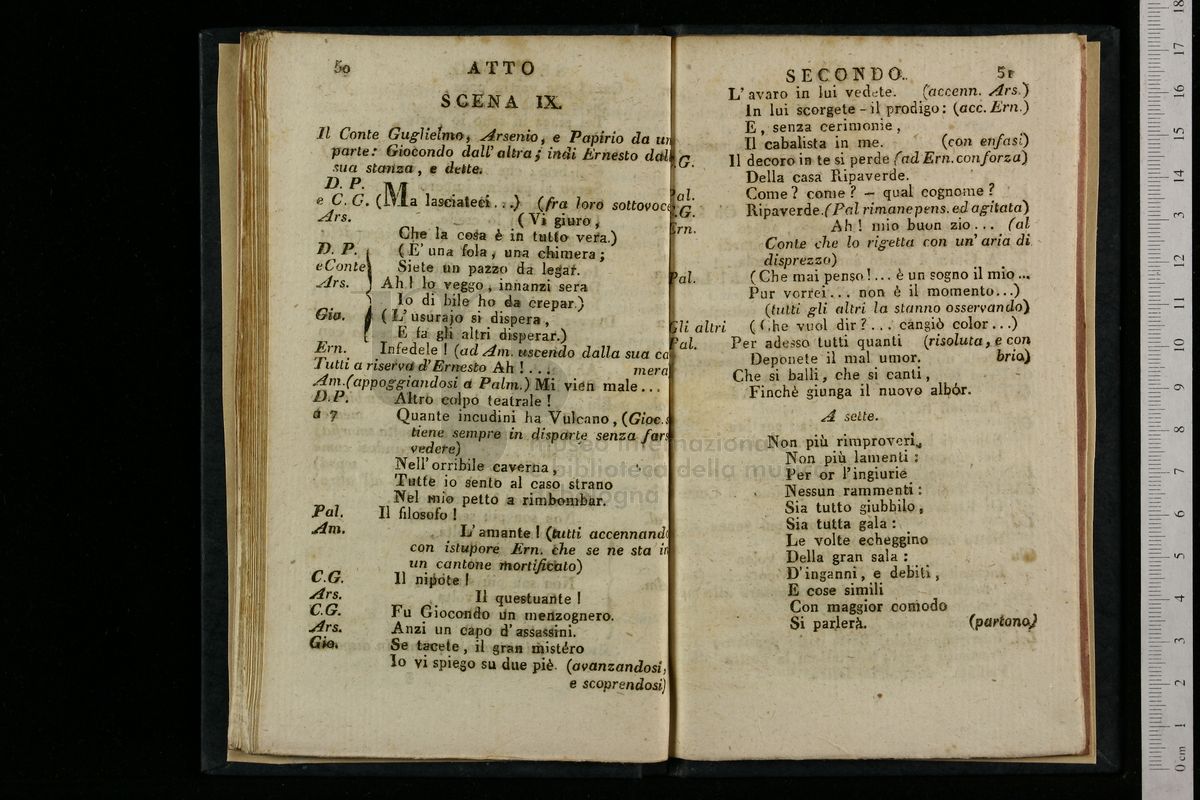 50 ATTO
SCENA IX.
Il Conte Guglielmo, Arsenio, e Papirio da un
parte: Giocondo dall' altra; indi Ernesto dal
sua stanza, e dette.
D. P.
e C. G. (Ma lasciateci...) (fra loro sottovoce
Ars. (Vi giuro,
Che la cosa è in tutto vera.)
D. P. (E' una fola, una chimera;
e Conte Siete un pazzo da legar.
Ars. Ah! lo veggo, innanzi sera
Io di bile ho da crepar.)
Gio. (L' usurajo si dispera,
E fa gli altri disperar.)
Ern. Infedele! (ad Am. uscendo dalla sua ca
Tutti a riserva d'Ernesto Ah!... mera
Am. (appoggiandosi a Palm.) Mi vien male...
D.P. Altro colpo teatrale!
a 7 Quante incudini ha Vulcano, (Gioc. s
tiene sempre in disparte senza fars
vedere)
Nell' orribile caverna,
Tutte io sento al caso strano
Nel mio petto a rimbombar.
Pal. Il filosofo!
Am. L' amante! (tutti accennand
con istupore Ern. che se ne sta in
un cantone mortificato)
C.G. Il nipote!
Ars. Il questuante!
C.G. Fu Giocondo un menzognero.
Ars. Anzi un capo d' assassini.
Gio. Se tacete, il gran mistéro
Io vi spiego su due piè. (avanzandosi,
e scoprendosi)
SECONDO. 51
L' avaro in lui vedete. (accenn. Ars.)
In lui scorgete - il prodigo: (acc. Ern.)
E, senza cerimonie,
Il cabalista in me. (con enfasi)
.G. Il decoro in te si perde (ad Ern. con forza)
Della casa Ripaverde.
Pal. Come? come? — qual cognome?
C.G. Ripaverde. (Pal rimane pens. ed agitata)
Ern. Ah! mio buon zio... (al
Conte che lo rigetta con un' aria di
disprezzo)
Pal. (Che mai penso!... è un sogno il mio...
Pur vorrei... non è il momento...)
(tutti gli altri la stanno osservando)
Gli altri (Che vuol dir?... cangiò color...)
Pal. Per adesso tutti quanti (risoluta, e con
Deponete il mal umor. brio)
Che si balli, che si canti,
Finchè giunga il nuovo albór.
A sette.
Non più rimproveri,
Non più lamenti:
Per or l'ingiurie
Nessun rammenti:
Sia tutto giubbilo,
Sia tutta gala:
Le volte echeggino
Della gran sala:
D' inganni, e debiti,
E cose simili
Con maggior comodo
Si parlerà. (partono)
museo internazionale
biblioteca della musica
bologna
0 cm 1 2 3 4 5 6 7 8 9 10 11 12 13 14 15 16 17 18